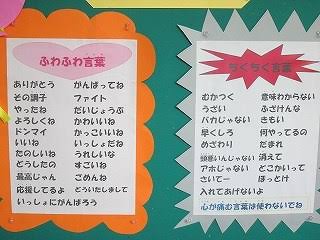 ふわふわ言葉
ありがとう　がんばってね
その調子　ファイト
やったね　だいじょうぶ
よろしくね　かわいいね
ドンマイ　かっこいいね
いいね　いっしょだね
たのしいね　うれしいな
どうしたの　すごいね
最高じゃん　ごめんね
応援してるよ　どういたしまして
いっしょにがんばろう
ちくちく言葉
むかつく　意味わからない
うざい　ふざけんな
バカじゃない　きもい
早くしろ　何やってるの
めざわり　だまれ
頭悪いんじゃない　消えて
アホじゃない　どこかいって
さいてー　ほっとけ
入れてあげないよ
心が痛む言葉は使わないでね